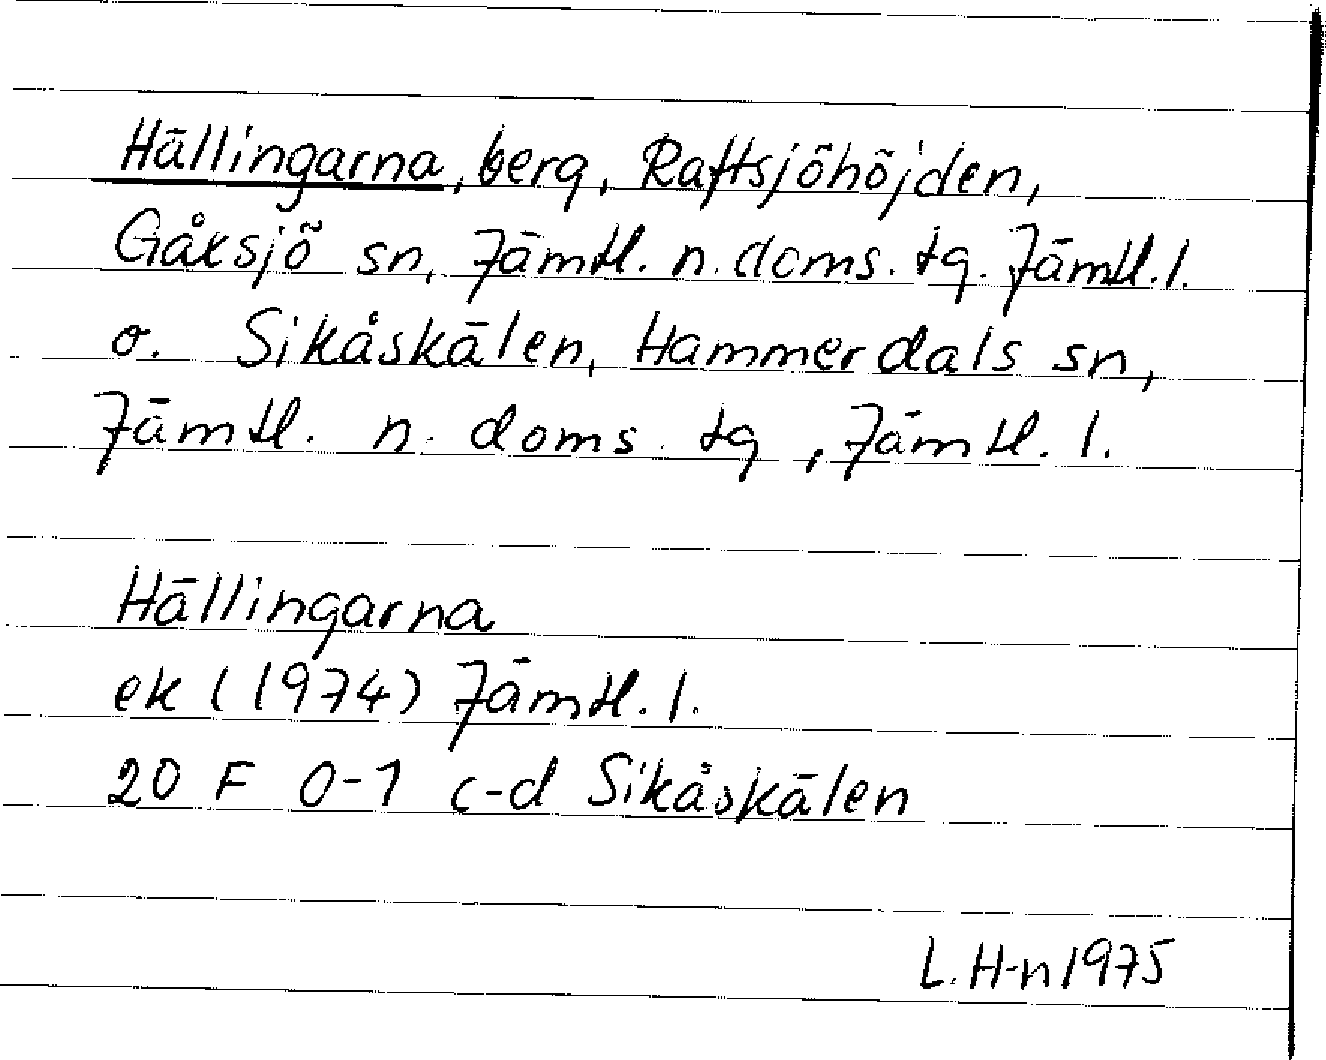 Hällingarna, berg, Raftsjöhöjden,
Gåxsjö sn, Jämtl. n. doms. tg. Jämtl. l.
o. Sikåskälen, Hammerdals sn,
Jämtl. n. doms. tg, Jämtl. l.
Hällingarna
ek (1974) Jämtl. l.
20 F 0-1 c-d Sikåskälen
L. H-n 1975